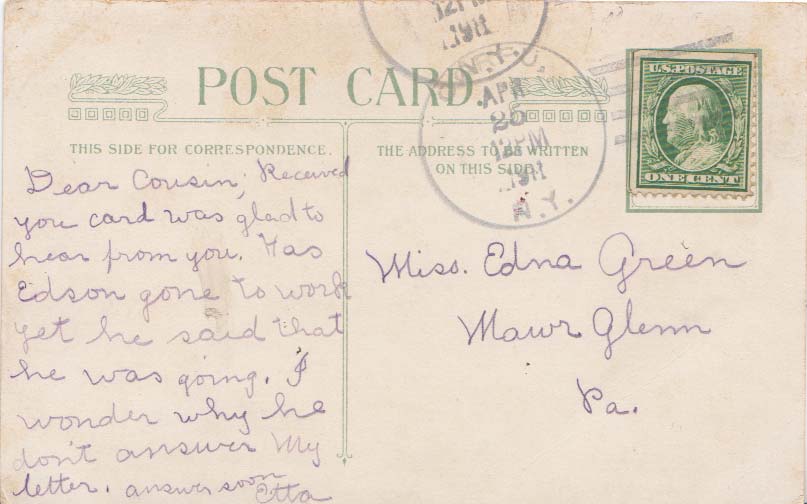 12PM
1911
N.Y.
APR
25
12PM
1911
N.Y.
U.S.POSTAGE
ONE CENT
POST CARD.
THIS SIDE FOR CORRESPONDENCE.
THE ADDRESS TO BE WRITTEN
ON THIS SIDE
Dear Cousin; Received
you card was glad to
hear from you. Has
Edson gone to work
yet he said that
he was going. I
wonder why he
don't answer My
letter. answer soon
Etta
Miss. Edna Green
Mawr Glenn
Pa.